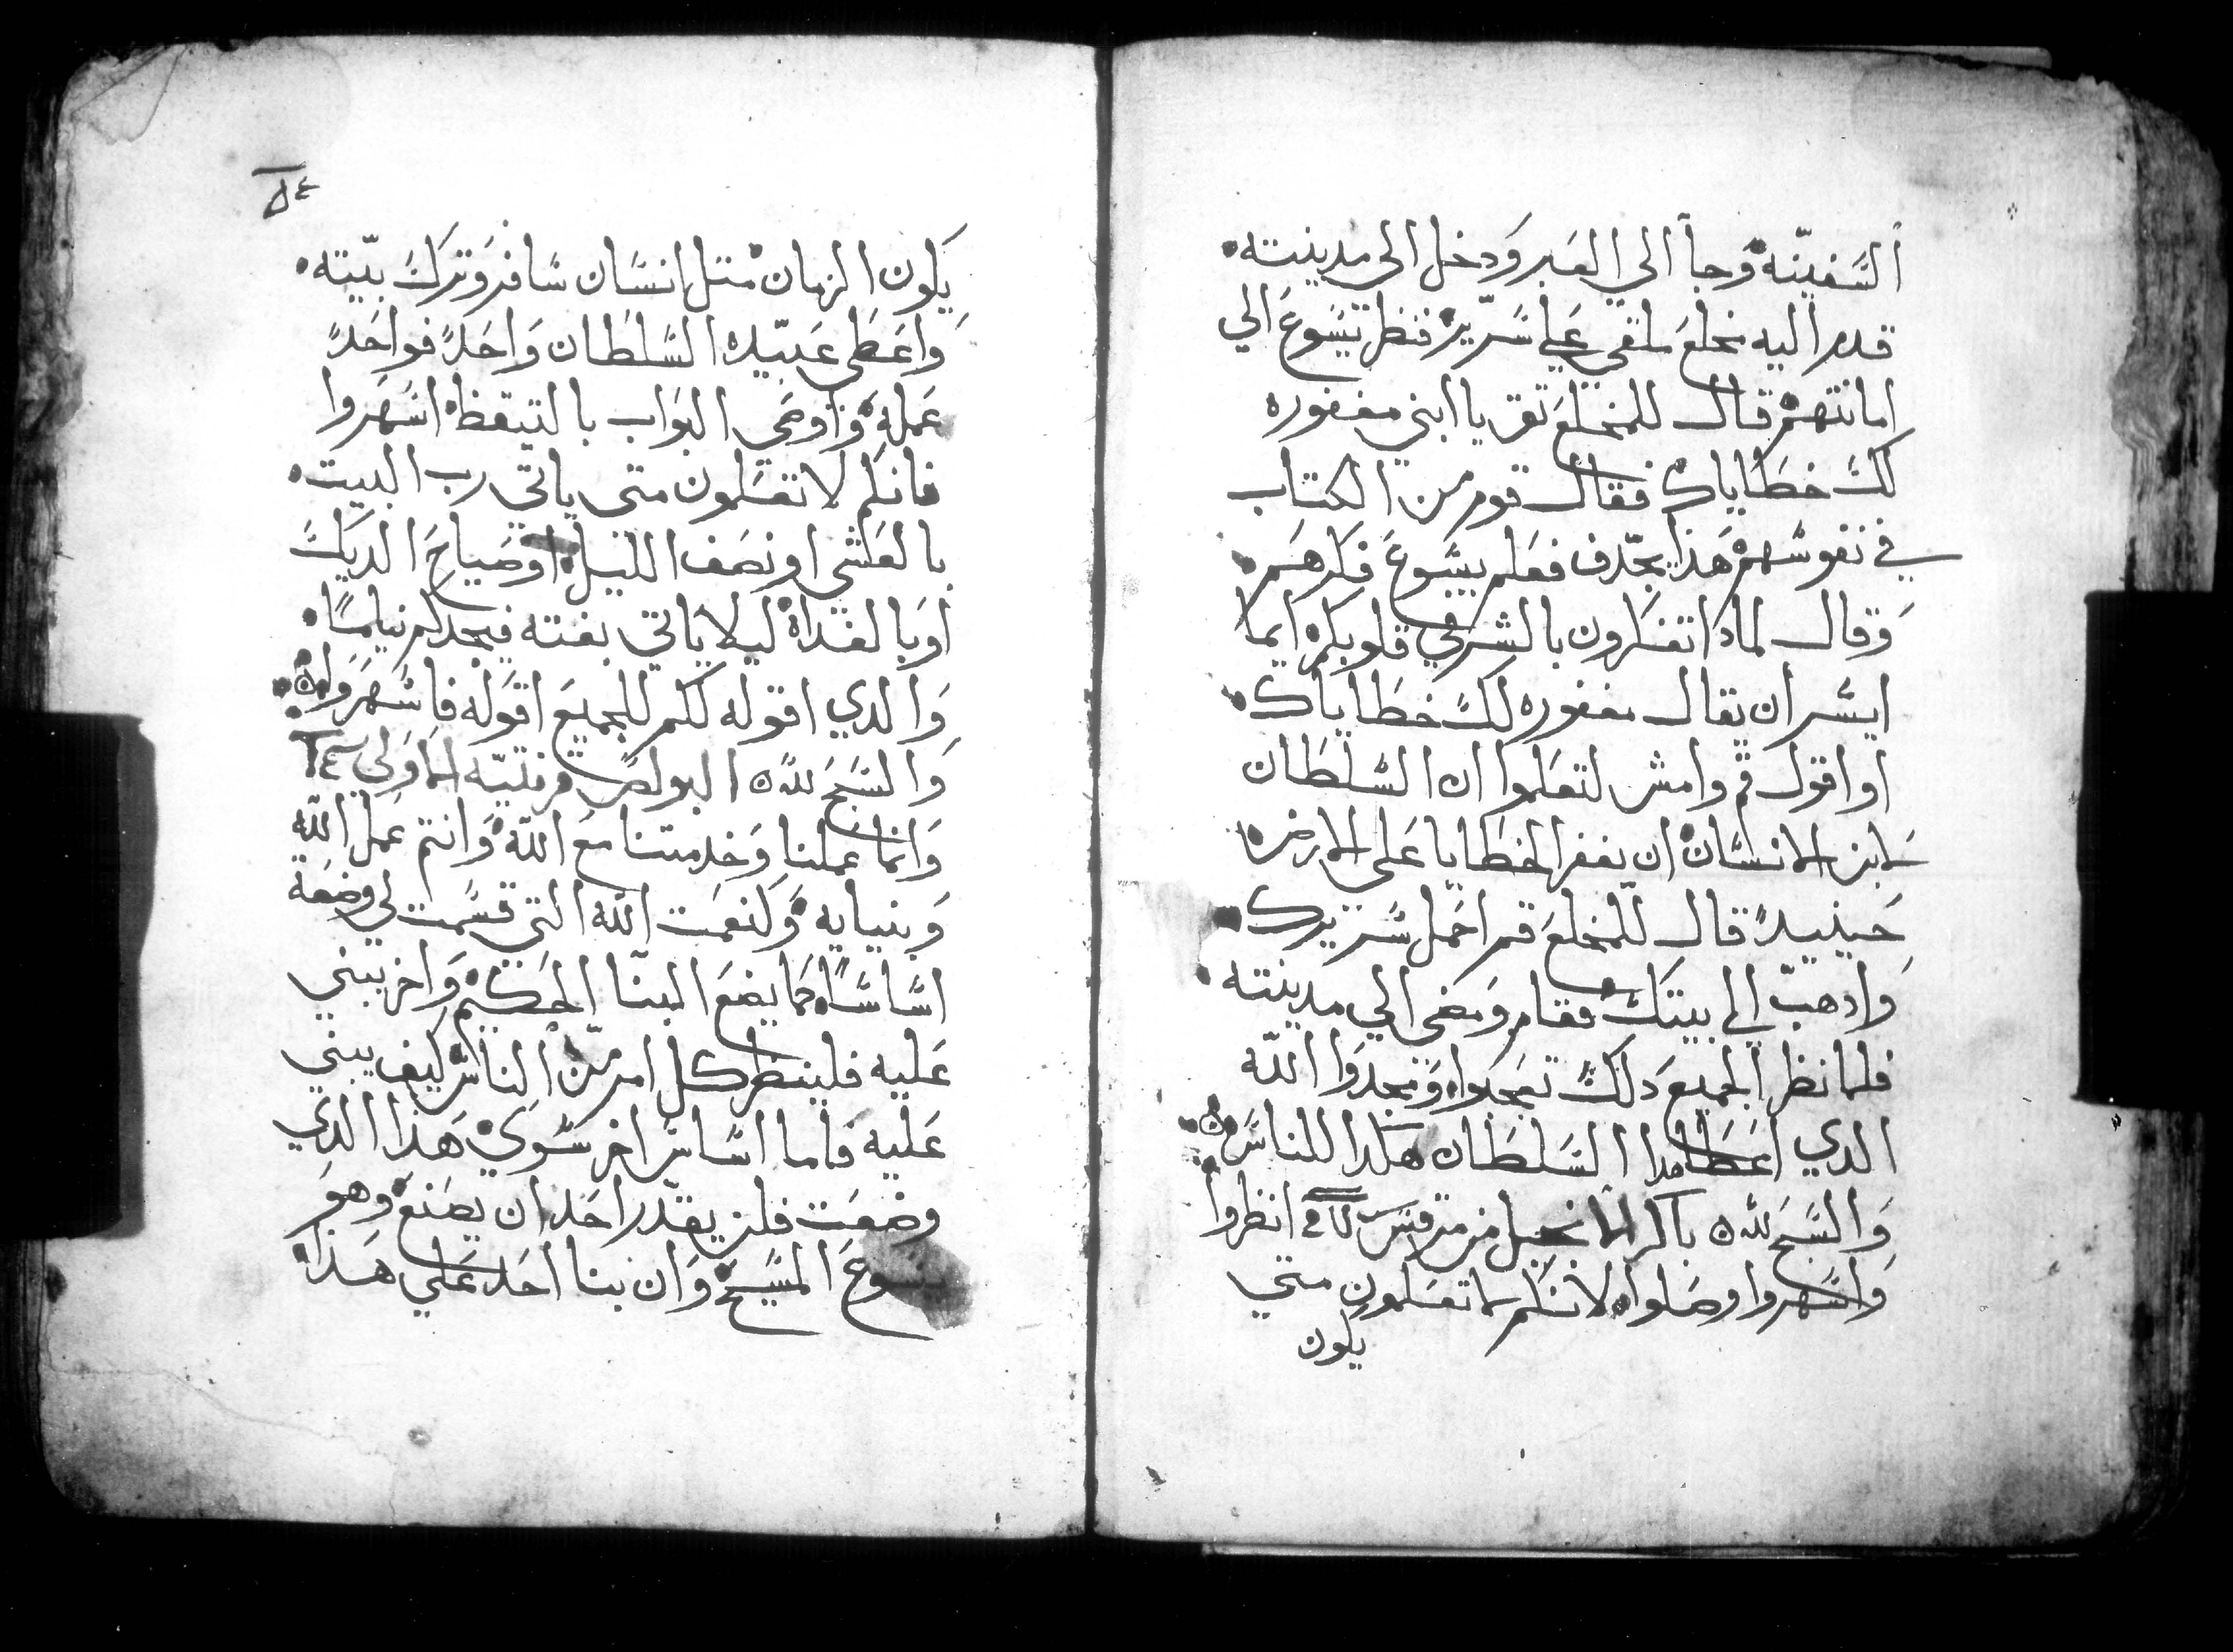 السفينه وجا الي العبر ودخل الي مدينته
قدم اليه مخلع ملقي علي سرير فنظر يسوع الي
امانتهم قال للمخلع تق يا ابني مغفوره
لك خطاياك فقال قوم من الكتاب
في نفوسهم هذا يجدف فعلم يسوع فكرهم
وقال لمادا تفكرون بالشر في قلوبكم ايما
ايسر ان يقال مغفوره لك خطاياك
او اقول قم وامش لتعلموا ان السلطان
لابن الانسان ان يغفر الخطايا على الارض
حينيد قال للمخلع قم احمل سريرك
وادهب الي بيتك فقام ومضى الي مدينته
فلما نظر الجميع دلك تعجبوا ومجدوا الله
الدي اعطا هدا السلطان هكدا للناس
والسبح لله باكر الانجيل من مرقس انظروا
واسهروا وصلوا لانكم لا تعلمون متي
يكون
٥٤
يكون الزمان متل انسان سافر وترك بيته
واعطى عبيده السلطان واحد فواحد
عمله واوصى البواب بالتيقظ اسهروا
فانكم لا تعلمون متى ياتي رب البيت
بالعشي او نصف الليل او صياح الديك
او بالغداه ليلا ياتي بغته فيجدكم نياما
والدي اقوله لكم للجميع اقوله فاسهروا
والسبح لله البولص قرنتيه الاولي
وانما عملنا وخدمتنا مع الله وانتم عمل الله
وبنيايه وكنعمت الله التي قسمت لي وضعت
اساسا كما يضع البنا الحكيم واخر يبني
عليه فلينظر كل امر من الناس كيف يبني
عليه فاما اساس اخر سوي هذا الدي
وضعت فلن يقدر احد ان يصنع وهو
يسوع المسيح وان بنا احد علي هذا